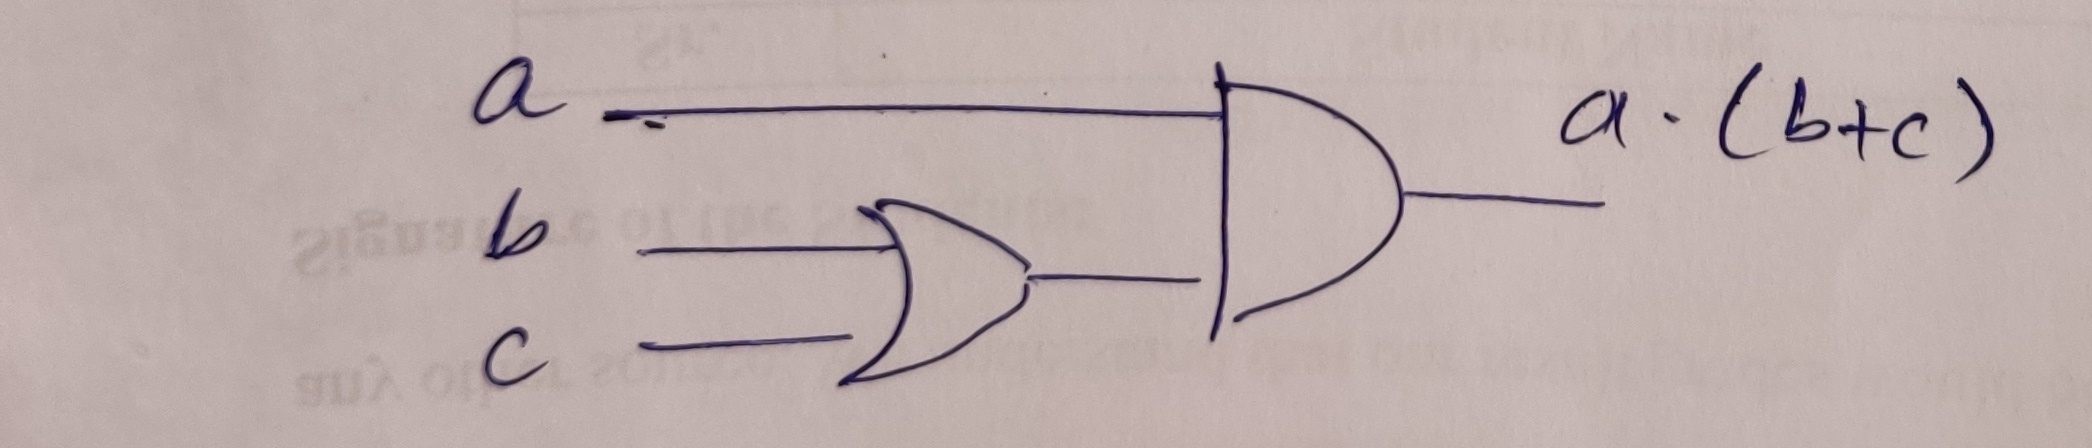 a
b
c
a · (b+c)